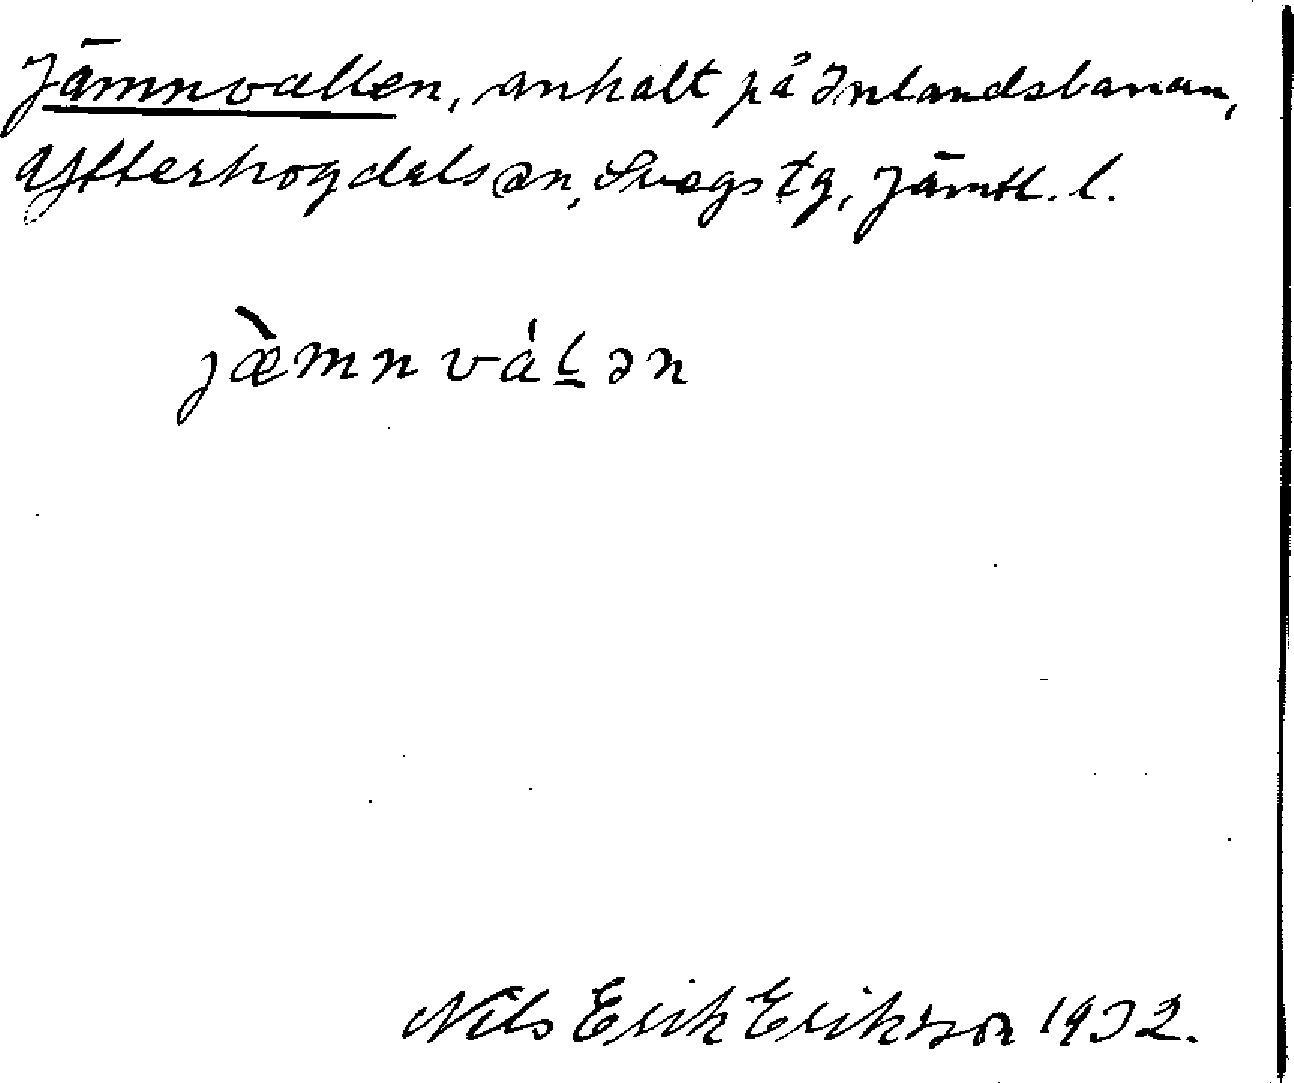 Jämnvallen, anhalt på Inlandsbanan,
Ytterhogdals sn, Svegs tg, Jämtl. l.
jæ̀mnvál̲ən
Nils Erik Erikson 1932.